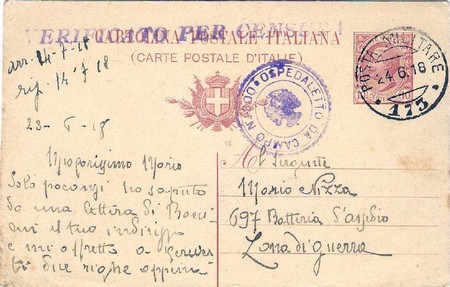 VERIFICATO PER CENSURA
CARTOLINA POSTALE ITALIANA
(CARTE POSTALE D'ITALIE)
arr. 14-7-18
risp. 14-7-18
POSTA MILITARE
24.6.18
173
OSPEDALETTO DA CAMPO N.
23-6-18
Mario
Solo ho saputo
da una lettera di
il tuo indirizzo
e mi affretto a
due righe
Al Sergente
Mario Nizza
697 Batteria d'assedio
Zona di guerra